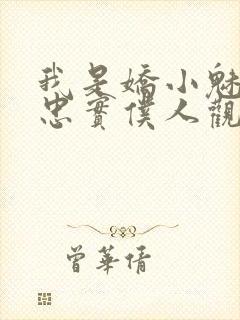 我是嬌小魅
忠實僕人觀
曾華倩